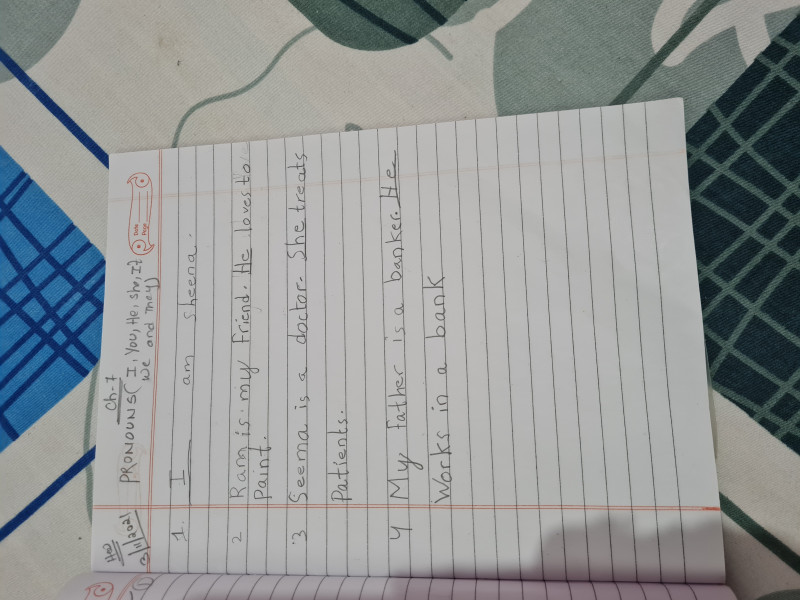 HW
3/11/2021
Ch-7
PRONOUNS( I, You, He, she, It
We and they)
Date
Page
1. I am sheena.
2 Ram is my Friend. He loves to
Paint.
3 Seema is a doctor. She treats
Patients.
4 My Father is a banker. He
Works in a bank